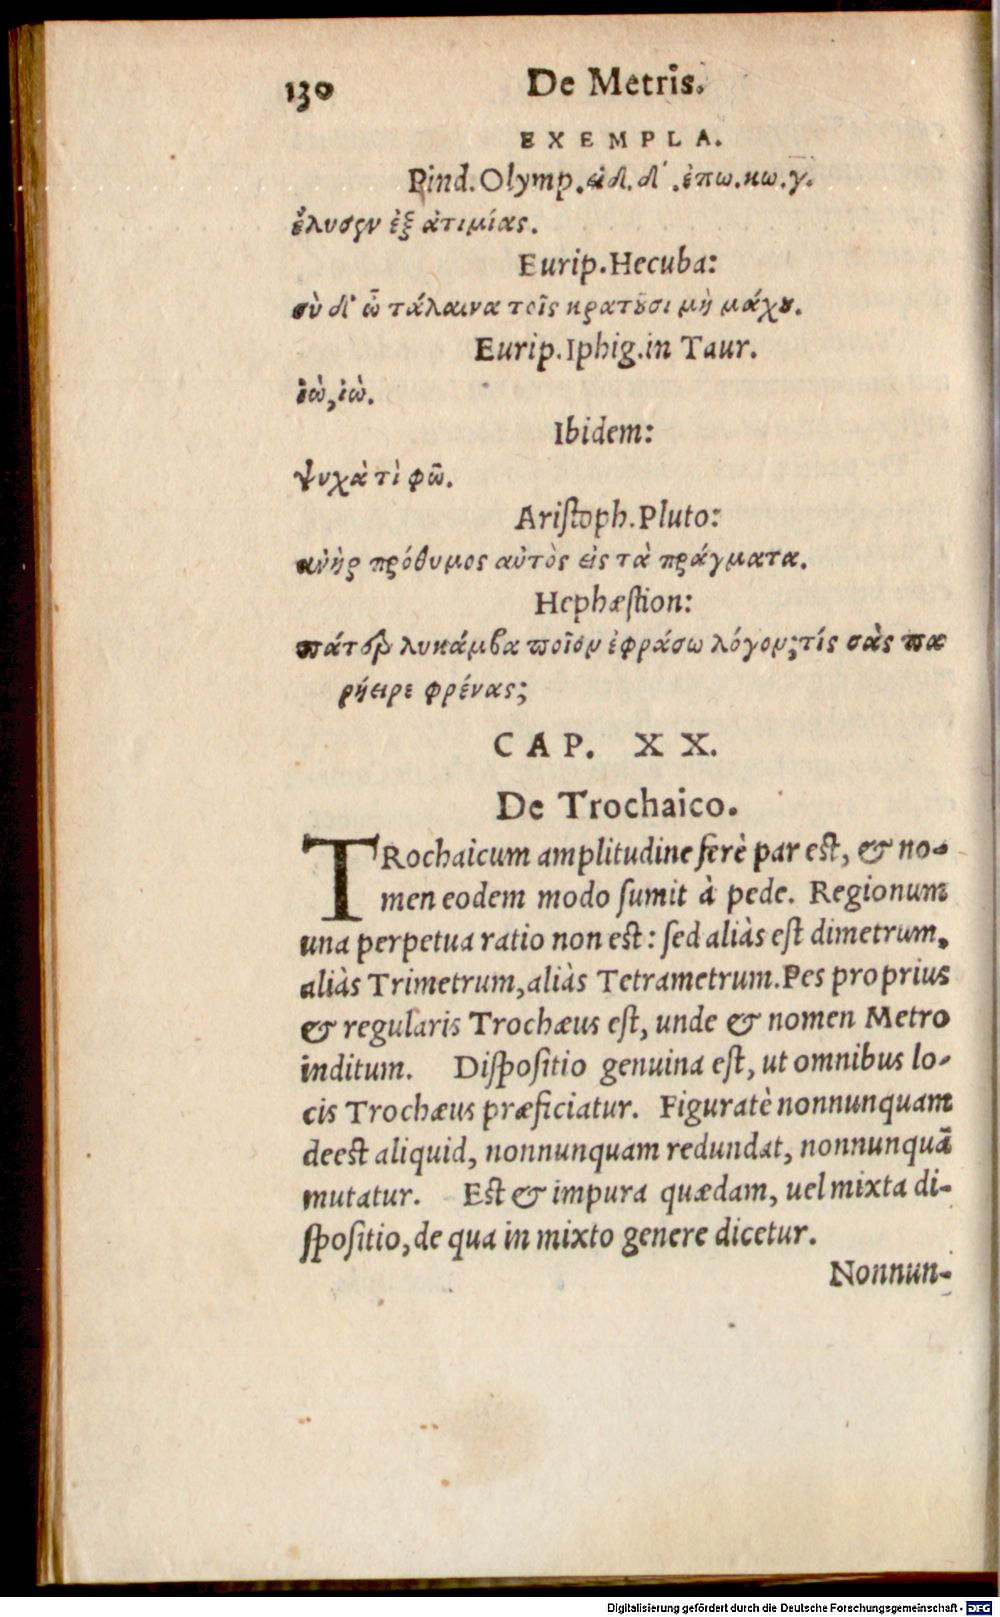 130 De Metris.
EXEMPLA.
Pind.Olymp.ειδ.δ´.ἐπω.κω.γ.
ἔλυσεν ἐξ ἀτιμίας.
Eurip.Hecuba:
σὺ δ' ὦ τάλαινα τοῖς κρατοῦσι μὴ μάχου.
Eurip.Iphig.in Taur.
ἰὼ,ἰὼ.
Ibidem:
ψυχὰ τὶ φῶ.
Ariſtoph.Pluto:
ανὴρ πρόθυμος αὐτὸς εἰς τὰ πράγματα.
Hephæſtion:
πάτερ λυκάμβα ποῖον ἐφράσω λόγον;τίς σὰς πα
ρήειρε φρένας;
CAP. XX.
De Trochaico.
TRochaicum amplitudine ferè par est, & no-
men eodem modo ſumit à pede. Regionum
una perpetua ratio non est: ſed aliàs eſt dimetrum,
aliàs Trimetrum,aliàs Tetrametrum.Pes proprius
& regularis Trochæus eſt, unde & nomen Metro
inditum. Diſpoſitio genuina eſt, ut omnibus lo-
cis Trochæus præficiatur. Figuratè nonnunquam
deest aliquid, nonnunquam redundat, nonnunquã
mutatur. Est & impura quædam, uel mixta di-
ſpoſitio,de qua in mixto genere dicetur.
Nonnun-
Digitalisierung gefördert durch die Deutsche Forschungsgemeinschaft - DFG